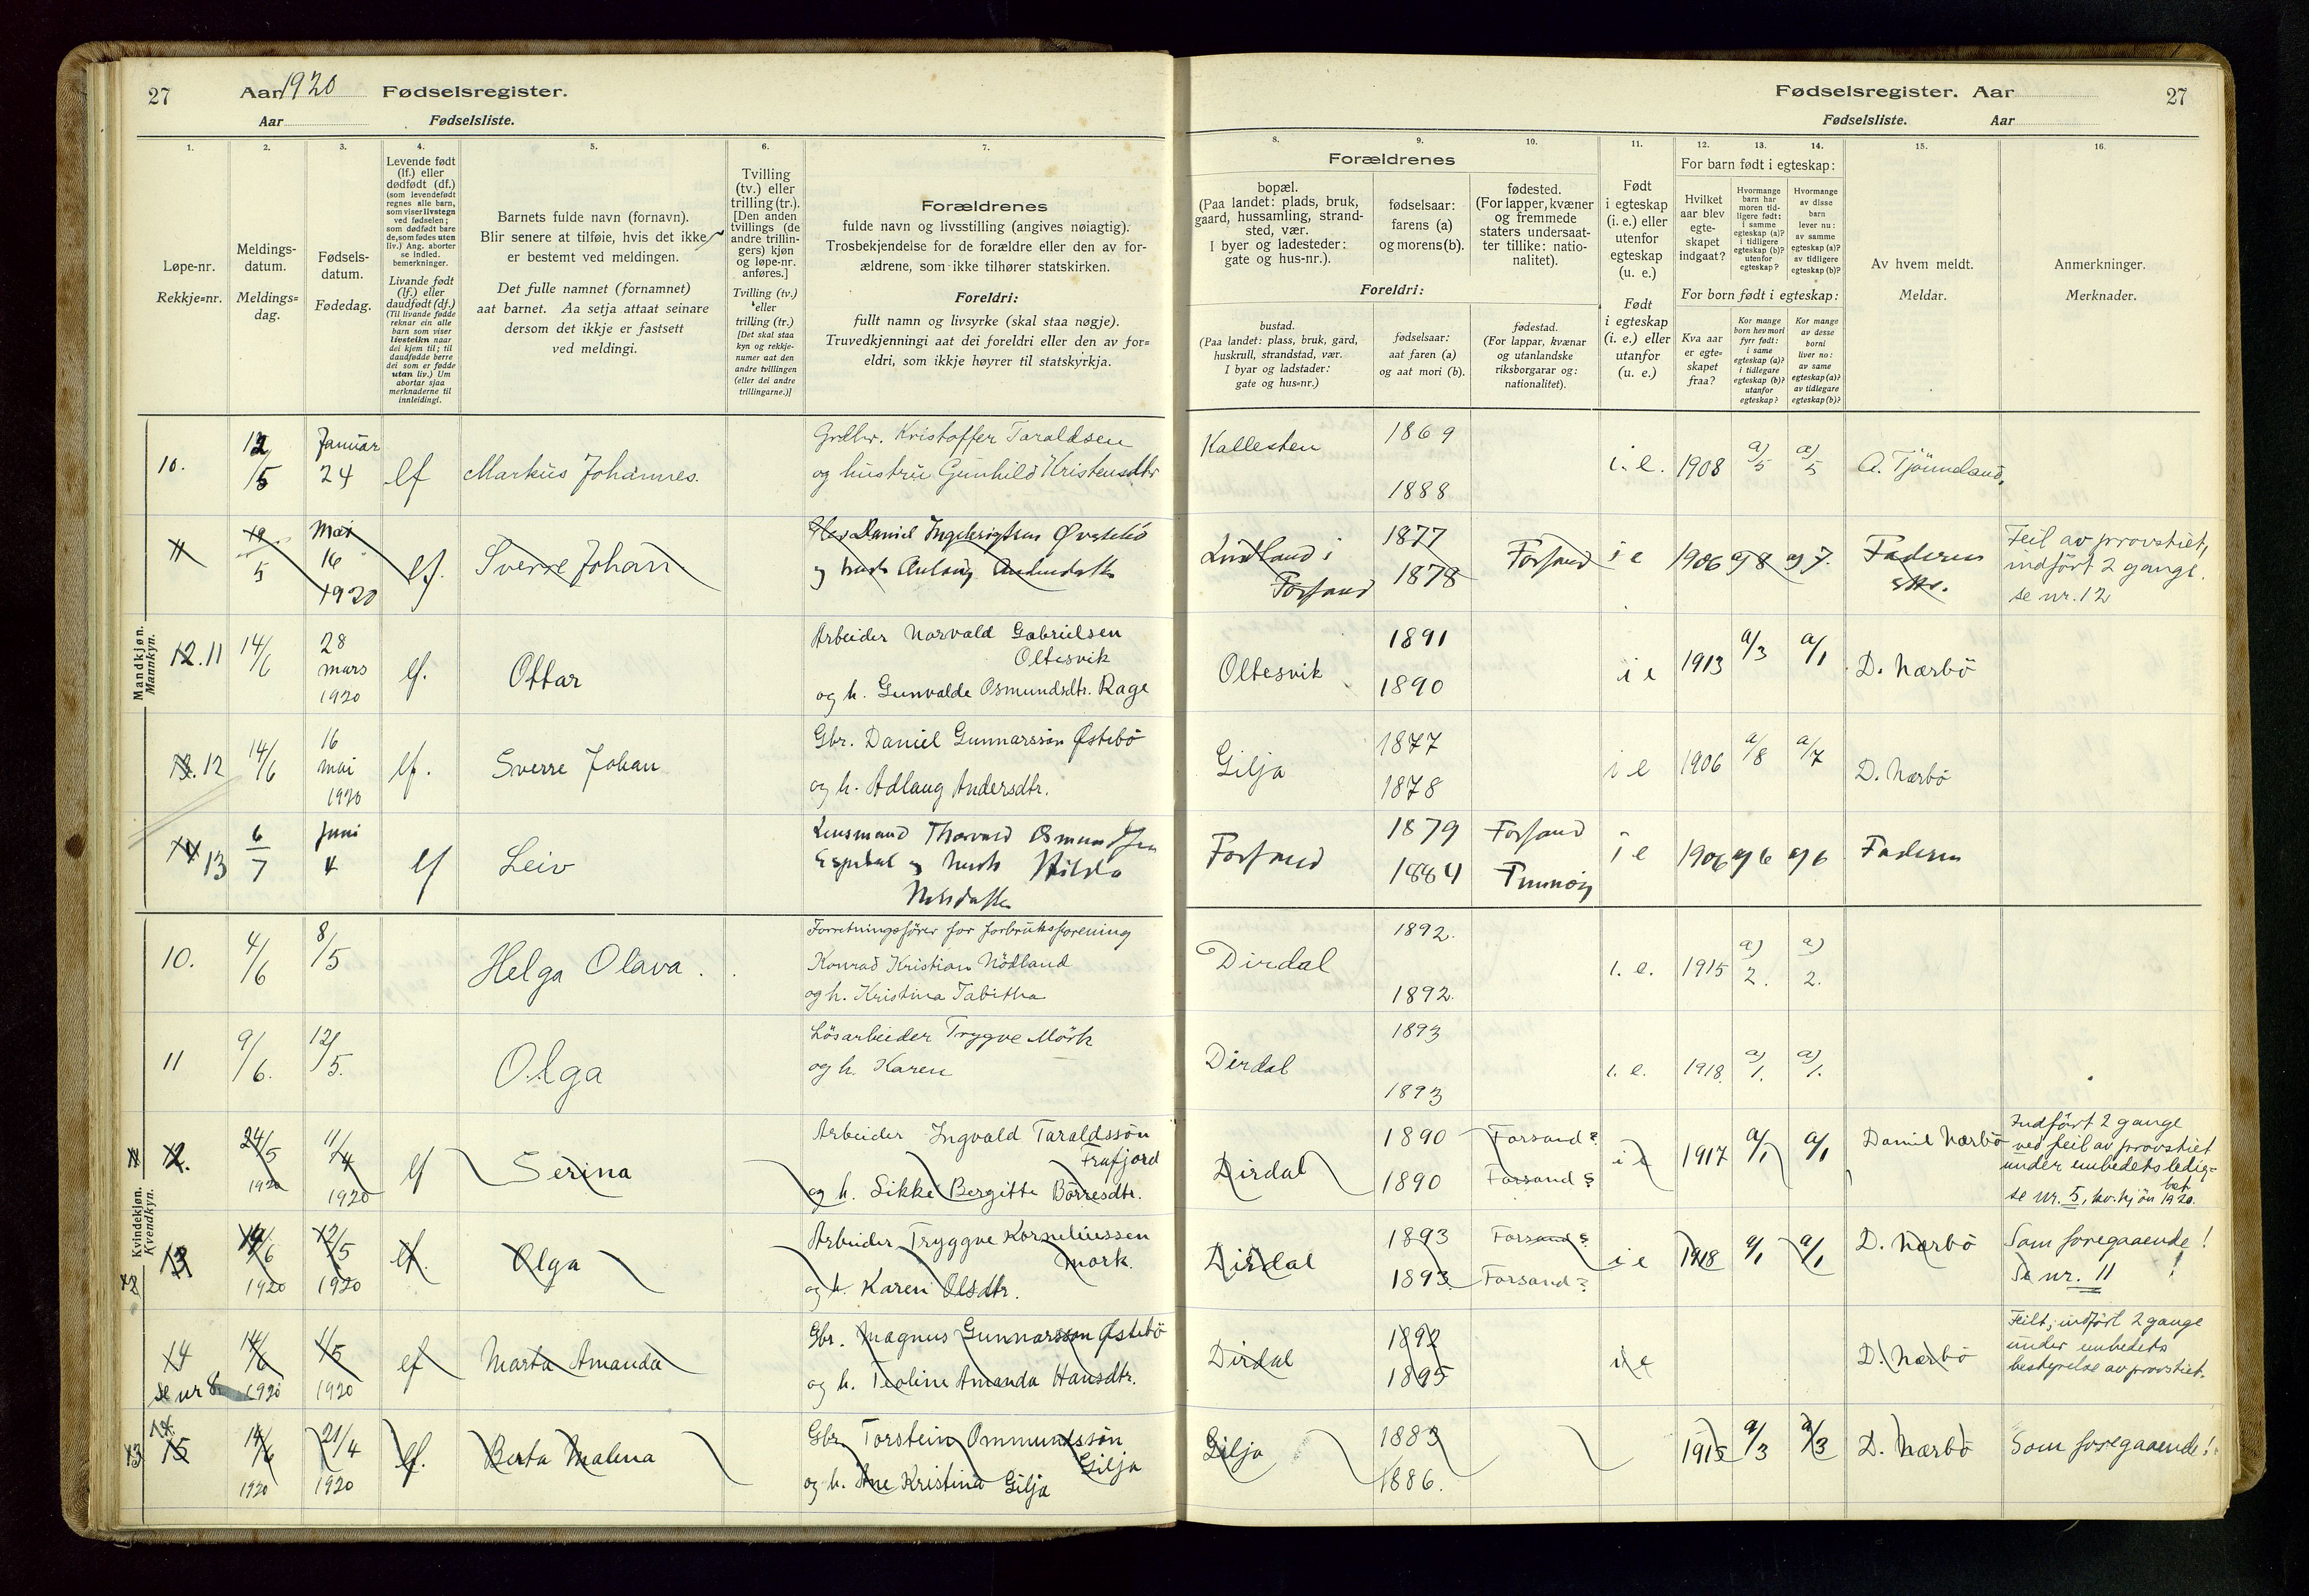 27 Aar 1920 Fødselsregister.
Aar Fødselsliste.
Fødselsregister. Aar 27
Fødselsliste. Aar
1. 2. 3. 4. 5. 6. 7. 8. 9. 10. 11. 12. 13. 14. 15. 16.
Løpe-nr.
Rekkje=nr.
Meldings-
datum.
Meldings=
dag.
Fødsels-
datum.
Fødedag.
Levende født
(lf.) eller
dødfødt (df.)
(som levendefødt
regnes alle barn,
som viser livstegn
ved fødselen;
som dødfødt bare
de, som fødes uten
liv.) Ang. aborter
se indled.
bemerkninger.
Livande født
(lf.) eller
daudfødt (df.)
(Til livande fødde
reknar ein alle
barn som viser
livsteikn naar
dei kjem til; til
daudfødde berre
dei som er fødde
utan liv.) Um
abortar sjaa
merknaderne til
innleidingi.
Barnets fulde navn (fornavn).
Blir senere at tilføie, hvis det ikke
er bestemt ved meldingen.
Det fulle namnet (fornamnet)
aat barnet. Aa setja attaat seinare
dersom det ikkje er fastsett
ved meldingi.
Tvilling
(tv.) eller
trilling (tr.).
[Den anden
tvillings (de
andre trillin-
gers) kjøn
og løpe-nr.
anføres.]
Tvilling (tv.)
eller
trilling (tr.)
[Det skal staa
kyn og rekkje-
numer aat den
andre tvillingen
(eller dei andre
trillingarne.)]
Forældrenes
fulde navn og livsstilling (angives nøiagtig).
Trosbekjendelse for de forældre eller den av for-
ældrene, som ikke tilhører statskirken.
Foreldri:
fullt namn og livsyrke (skal staa nøgje).
Truvedkjenningi aat dei foreldri eller den av for=
eldri, som ikkje høyrer til statskyrkja.
Forældrenes
bopæl.
(Paa landet: plads, bruk,
gaard, hussamling, strand-
sted, vær.
I byer og ladesteder:
gate og hus-nr.).
fødselsaar:
farens (a)
og morens (b).
fødested.
(For lapper, kvæner
og fremmede
staters undersaat-
ter tillike: natio-
nalitet).
Foreldri:
bustad.
(Paa landet: plass, bruk, gard,
huskrull, strandstad, vær.
I byar og ladstader:
gate og hus=nr.)
fødselsaar:
aat faren (a)
og aat mori (b).
fødestad.
(For lappar, kvænar
og utanlandske
riksborgarar og:
nationalitet).
Født
i egteskap
(i. e.) eller
utenfor
egteskap
(u. e.)
Født
i egteskap
(i. e.) eller
utanfor
(u. e.)
For barn født i egteskap:
Hvilket
aar blev
egte-
skapet
indgaat?
Hvormange
barn har
moren tid-
ligere født:
i samme
egteskap (a)?
i tidligere
egteskap (b)?
utenfor
egteskap?
Hvormange
av disse
barn
lever nu:
av samme
egteskap (a)?
av tidligere
egteskap (b)?
For born født i egteskap:
Kva aar
er egte-
skapet
fraa?
Kor mange
born hev mori
fyrr født:
i same
egteskap (a)?
i tidlegare
egteskap (b)?
utanfor
egteskap?
Kor mange
av desse
borni
liver no:
av same
egteskap (a)?
av tidlegare
egteskap (b)?
Av hvem meldt.
Meldar.
Anmerkninger.
Merknader.
Mandkjøn.
Mannkyn.
10. 12/5 Januar 24 lf Markus Johannes. Kallesten 1869 i. e. 1908 a) 5 a) 5 A. Tjönneland,
Kristoffer Taraldsen
og hustru Gunhild Kristensdtr 1888
11 19/5 Mai 16 1920 lf. Sverre Johan Daniel Ingebrigtsen Øvstebö 1877 Forsand i e 1906 a) 8 a) 7. Faderen
Lindland i Forsand 1878
Feil av provstiet,
indført 2 gange.
se nr. 12
12. 11 14/6 28 mars 1920 lf. Ottar Arbeider Norvald Gabrielsen
Oltesvik
og h. Gunvalde Osmundsdtr. Rage
Oltesvik 1891 1890 i e 1913 a/3 a/1 D. Nærbö
13. 12 14/6 16 mai 1920 lf. Sverre Johan Gbr. Daniel Gunnarssön Østebö
og h. Adlaug Andersdtr.
Gilja 1877 1878 i e 1906 a/8 a/7 D. Nærbö
14 13 6/7 Juni 4 lf Leiv Lensmand Thorvard Osmundsen
Espedal og hustr Hilda
Nilsdatter
Forsand 1879 1884 Forsand i e 1906 a) 6 a) 6 Faderen
Kvindekjøn.
Kvendkyn.
10. 4/6 8/5 Helga Olava. Forretningsfører for forbruksforening
Konrad Kristian Nödland
og h. Kristina Tabitha
Dirdal 1892. 1892. i. e. 1915 a) 2. a) 2.
11 9/6. 12/5. Olga Lösarbeider Trygve Mörk
og h. Karen
Dirdal 1893 1893 i. e. 1918. a) 1. a) 1.
11 12. 24/5 1920 11/4 1920 lf Serina Arbeider Ingvald Taraldssön
Frafjord
og h. Sikke Bergitte Börresdtr.
Dirdal 1890 1890 Forsand? Forsand? i e 1917 a/1 a/1 Daniel Nærbö
Indført 2 gange
ved feil av provstiet
under embedets ledig-
het
se nr. 5, kv.kjön 1920.
12 13 14/6 1920 12/5 1920 lf. Olga Arbeider Tryggve Korneliussen
Mörk.
og h. Karen Olsdtr.
Dirdal 1893 1893 Forsand? Forsand? i e 1918 a/1 a/1 D. Nærbö
Som foregaaende!
Se nr. 11 !
14 se nr 8. 14/6 1920 1/5 1920 lf Marta Amanda Gbr. Magnus Gunnarsson Østebö
og h. Teoline Amanda Hansdtr.
Dirdal 1892 1895 i e D. Nærbö
Feilt, indført 2 gange
under embedets
bestyrelse av provstiet.
13 14. 15 14/6 1920 21/4 1920 lf. Berta Malena Gbr. Torstein Ommundssön
Gilja
og h. Ane Kristina Gilja
Gilja 1883 1886. 1915 a/3 a/3 D. Nærbö Som foregaaende!